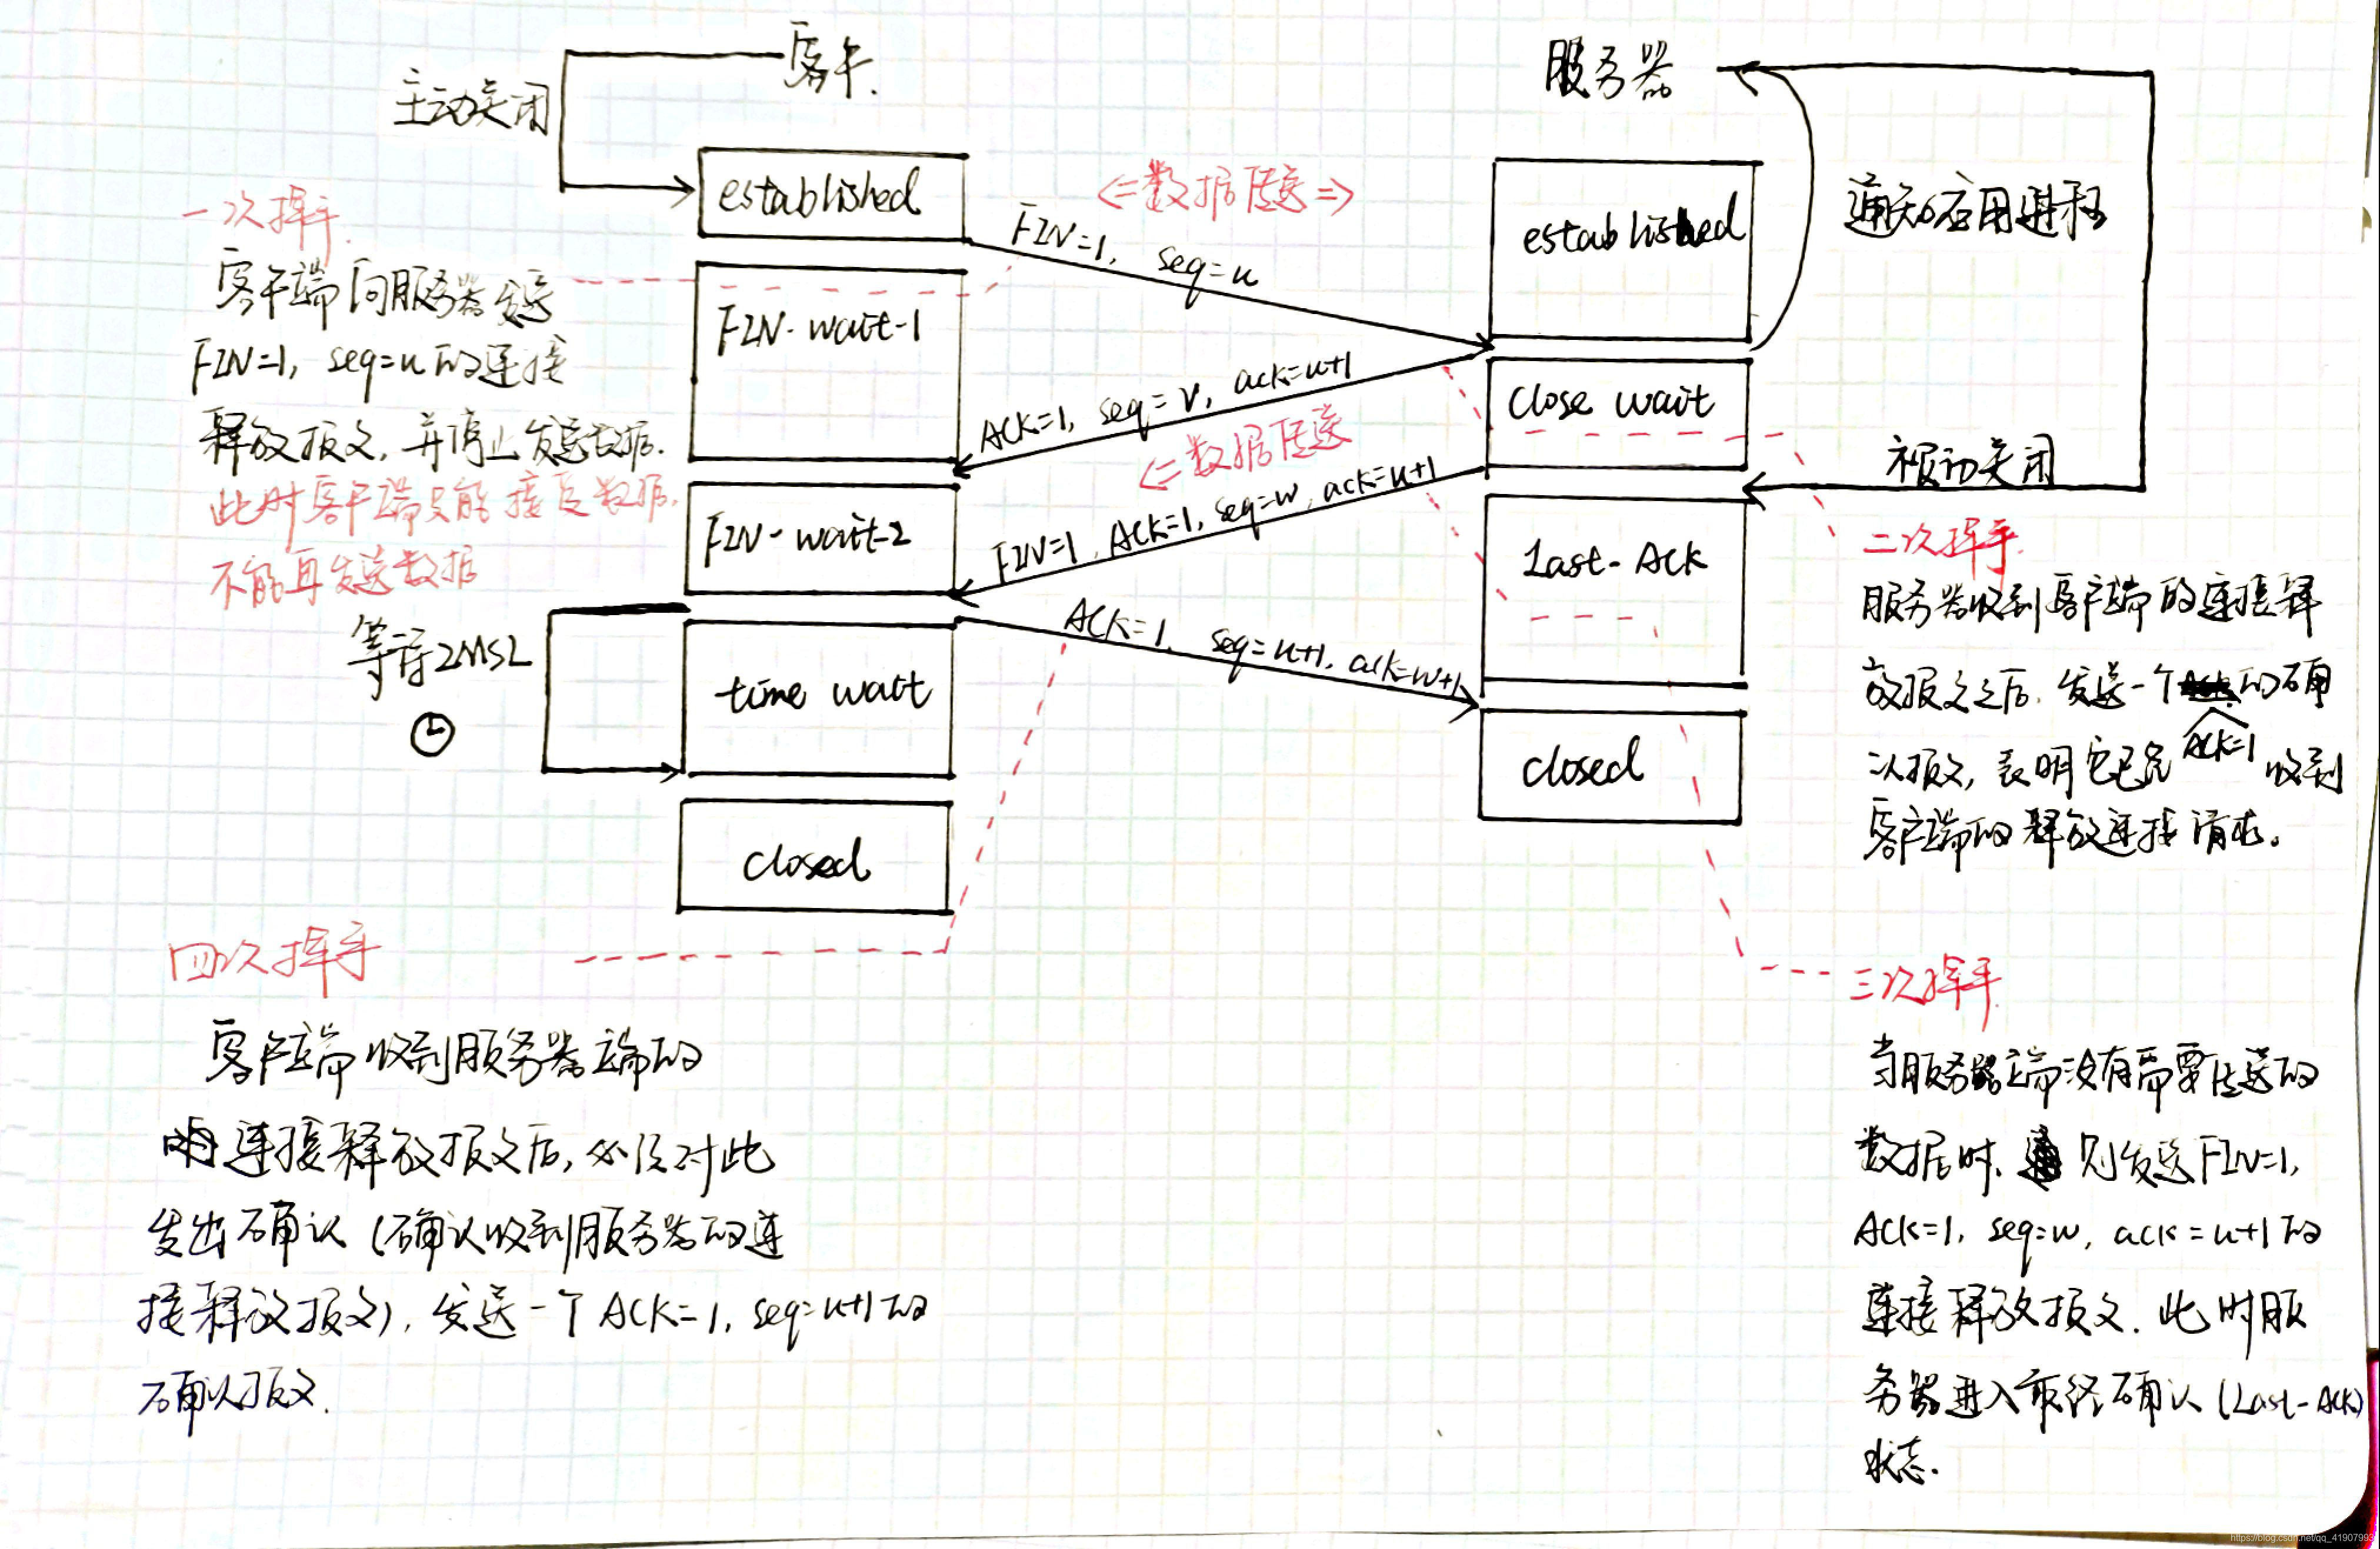 客户.
服务器
主动关闭
established
<=数据传送=>
established
通知应用进程
一次挥手.
FIN=1, seq=u
客户端向服务器发送
FIN=1, seq=u的连接
释放报文, 并停止发送数据.
此时客户端只能接收数据.
不能再发送数据
FIN-wait-1
ACK=1, seq=v, ack=u+1
close wait
<=数据传送
被动关闭
FIN-wait-2
FIN=1, ACK=1, seq=w, ack=u+1
Last-Ack
二次挥手.
服务器收到客户端的连接释
放报文之后. 发送一个ACK=1的确
认报文, 表明它已经收到
客户端的释放连接请求。
等待2MSL
time wait
ACK=1, seq=u+1, ack=w+1
closed
closed
四次挥手
客户端收到服务器端的
连接释放报文后, 必须对此
发出确认 (确认收到服务器的连
接释放报文), 发送一个ACK=1, seq=u+1的
确认报文.
三次挥手
当服务器端没有需要传送的
数据时, 则发送FIN=1,
Ack=1, seq=w, ack=u+1的
连接释放报文. 此时服
务器进入最终确认 (Last-Ack)
状态.
https://blog.csdn.net/qq_41907993